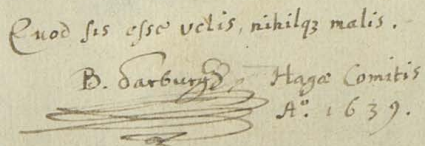 Quod sis esse velis, nihilqꝫ malis.
B. Harburgh, Hagæ Comitis
Aº. 1639.